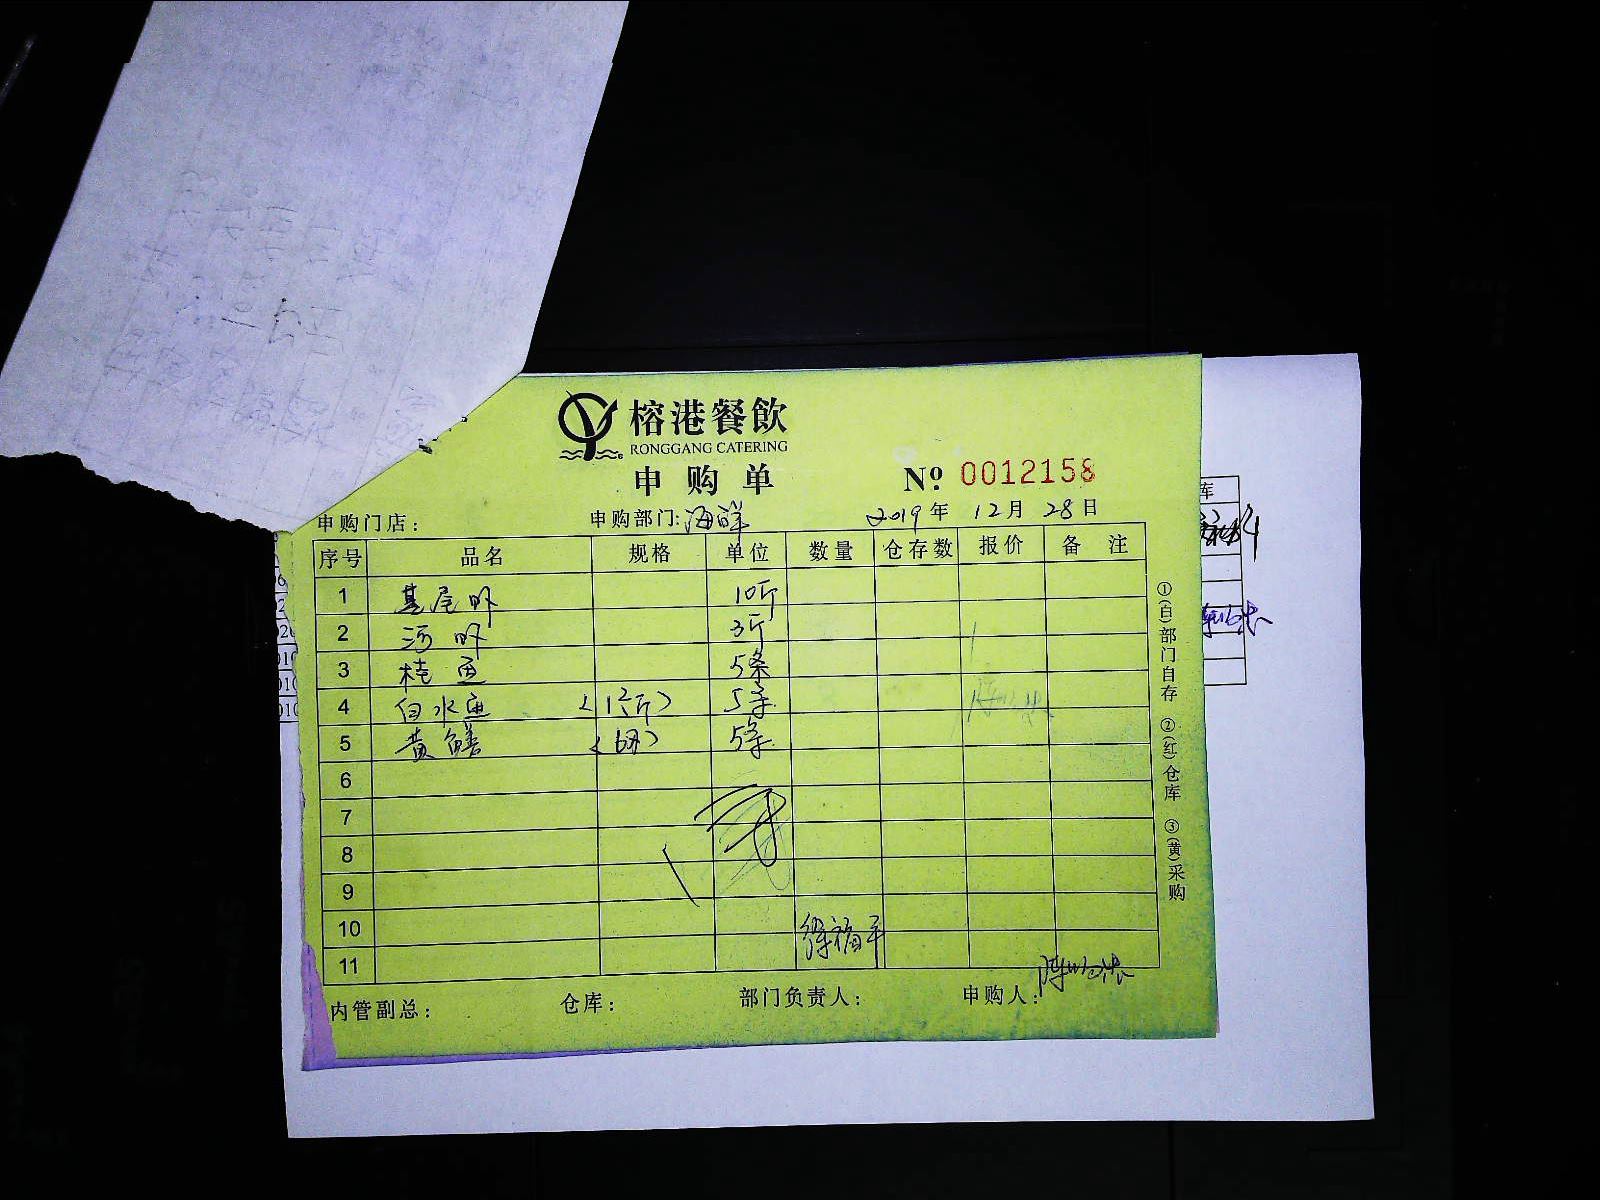 榕港餐飲
RONGGANG CATERING
申购单 № 0012158
申购门店： 申购部门:海鲜 2019年 12月 28日
序号 品名 规格 单位 数量 仓存数 报价 备 注
1 基尾虾 10斤
2 河虾 3斤
3 桂鱼 5条
4 白水鱼 5条
5 黄鳝 5条
6
7
8
9
10
11
徐福平
内管副总： 仓库： 部门负责人： 申购人：
①(白)部门自存 ②(红)仓库 ③(黄)采购
库